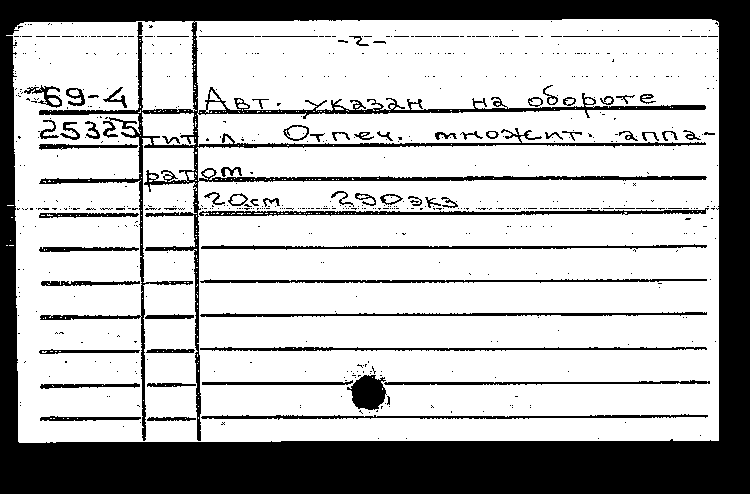 -2-
69-4 Авт. указан на обороте
25325 тит. л. Отпеч. множит. аппа-
ратом.
20см 290экз